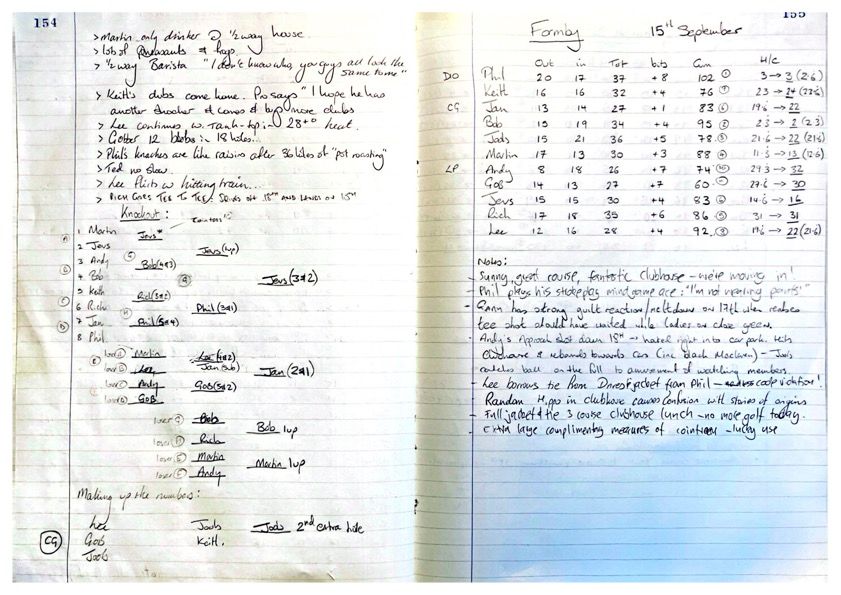 154
> Martin only drinker @ 1/2 way house
> lots of pheasants & frogs
> 1/2 way Barista "I don't know who, you guys all look the same to me"
> Keith's clubs come home. Pro says "I hope he has
another shocker & comes & buys more clubs
> Lee continues w. Tank-top in 28+° heat.
> Gobber 12 blobs in 18 holes...
> Phil's knackers are like raisins after 36 holes of "pot roasting"
> Ted no show.
> Lee Phibs w hitting train...
> Rich goes TEE TO TEE! off 18th and lands on 15th
Knockout:
1 Martin
Jevs*
2 Jevs
Jevs (1up)
3 Andy
Bob (4&3)
4 Bob
Jevs (3&2)
5 Keith
Rich (3&2)
6 Rich
Phil (3&1)
7 Jan
Phil (5&4)
8 Phil
loser A Martin
Lee (4&2)
Jan (sub)
loser Lee
Jan (2&1)
loser Andy
Gob (5&2)
loser Gob
loser Bob
Bob 1up
loser Rich
loser Martin
Martin 1up
loser Andy
Making up the numbers:
Lee
Joob
Joob 2nd extra hole
CG
Gob
Keith.
Joob
155
Formby 15th September
Out in Tot bits Gim H/C
DO Phil 20 17 37 +8 102 ① 3 → 3 (2.6)
Keith 16 16 32 +4 76 23 → 24 (22.6)
CG Jan 13 14 27 +1 83 ⑥ 19.6 → 22
Bob 15 19 34 +4 95 ② 2.3 → 2 (2.3)
Joob 15 21 36 +5 78 21.6 → 22 (21.6)
Martin 17 13 30 +3 88 ④ 11.3 → 13 (12.6)
LP Andy 8 18 26 +7 74 29.3 → 32
Gob 14 13 27 +7 60 27.6 → 30
Jevs 15 15 30 +4 83 ⑥ 14.6 → 16
Rich 17 18 35 +6 86 ⑤ 31 → 31
Lee 12 16 28 +4 92 ③ 19.6 → 22 (21.6)
Notes:
- Sunny, great course, fantastic clubhouse - we're moving in!
- Phil plays his strokeplay mindgame ace: "I'm not wearing pants!"
- has strong guilt reaction/meltdown on 17th when realises
tee shot should have waited while ladies on close green.
- Andy's Approach shot down 18th → hated right into car park. Hits
Clubhouse & rebounds towards cars (inc black Maclaren) - Joob
catches ball on the full to amusement of watching members.
- Lee borrows tie from jacket from Phil - code violation!
Random in clubhouse causes confusion with stories of origins
- Full jacket & tie 3 course clubhouse lunch - no more golf today.
- Extra large complimentry measures of cointreau - lucky use